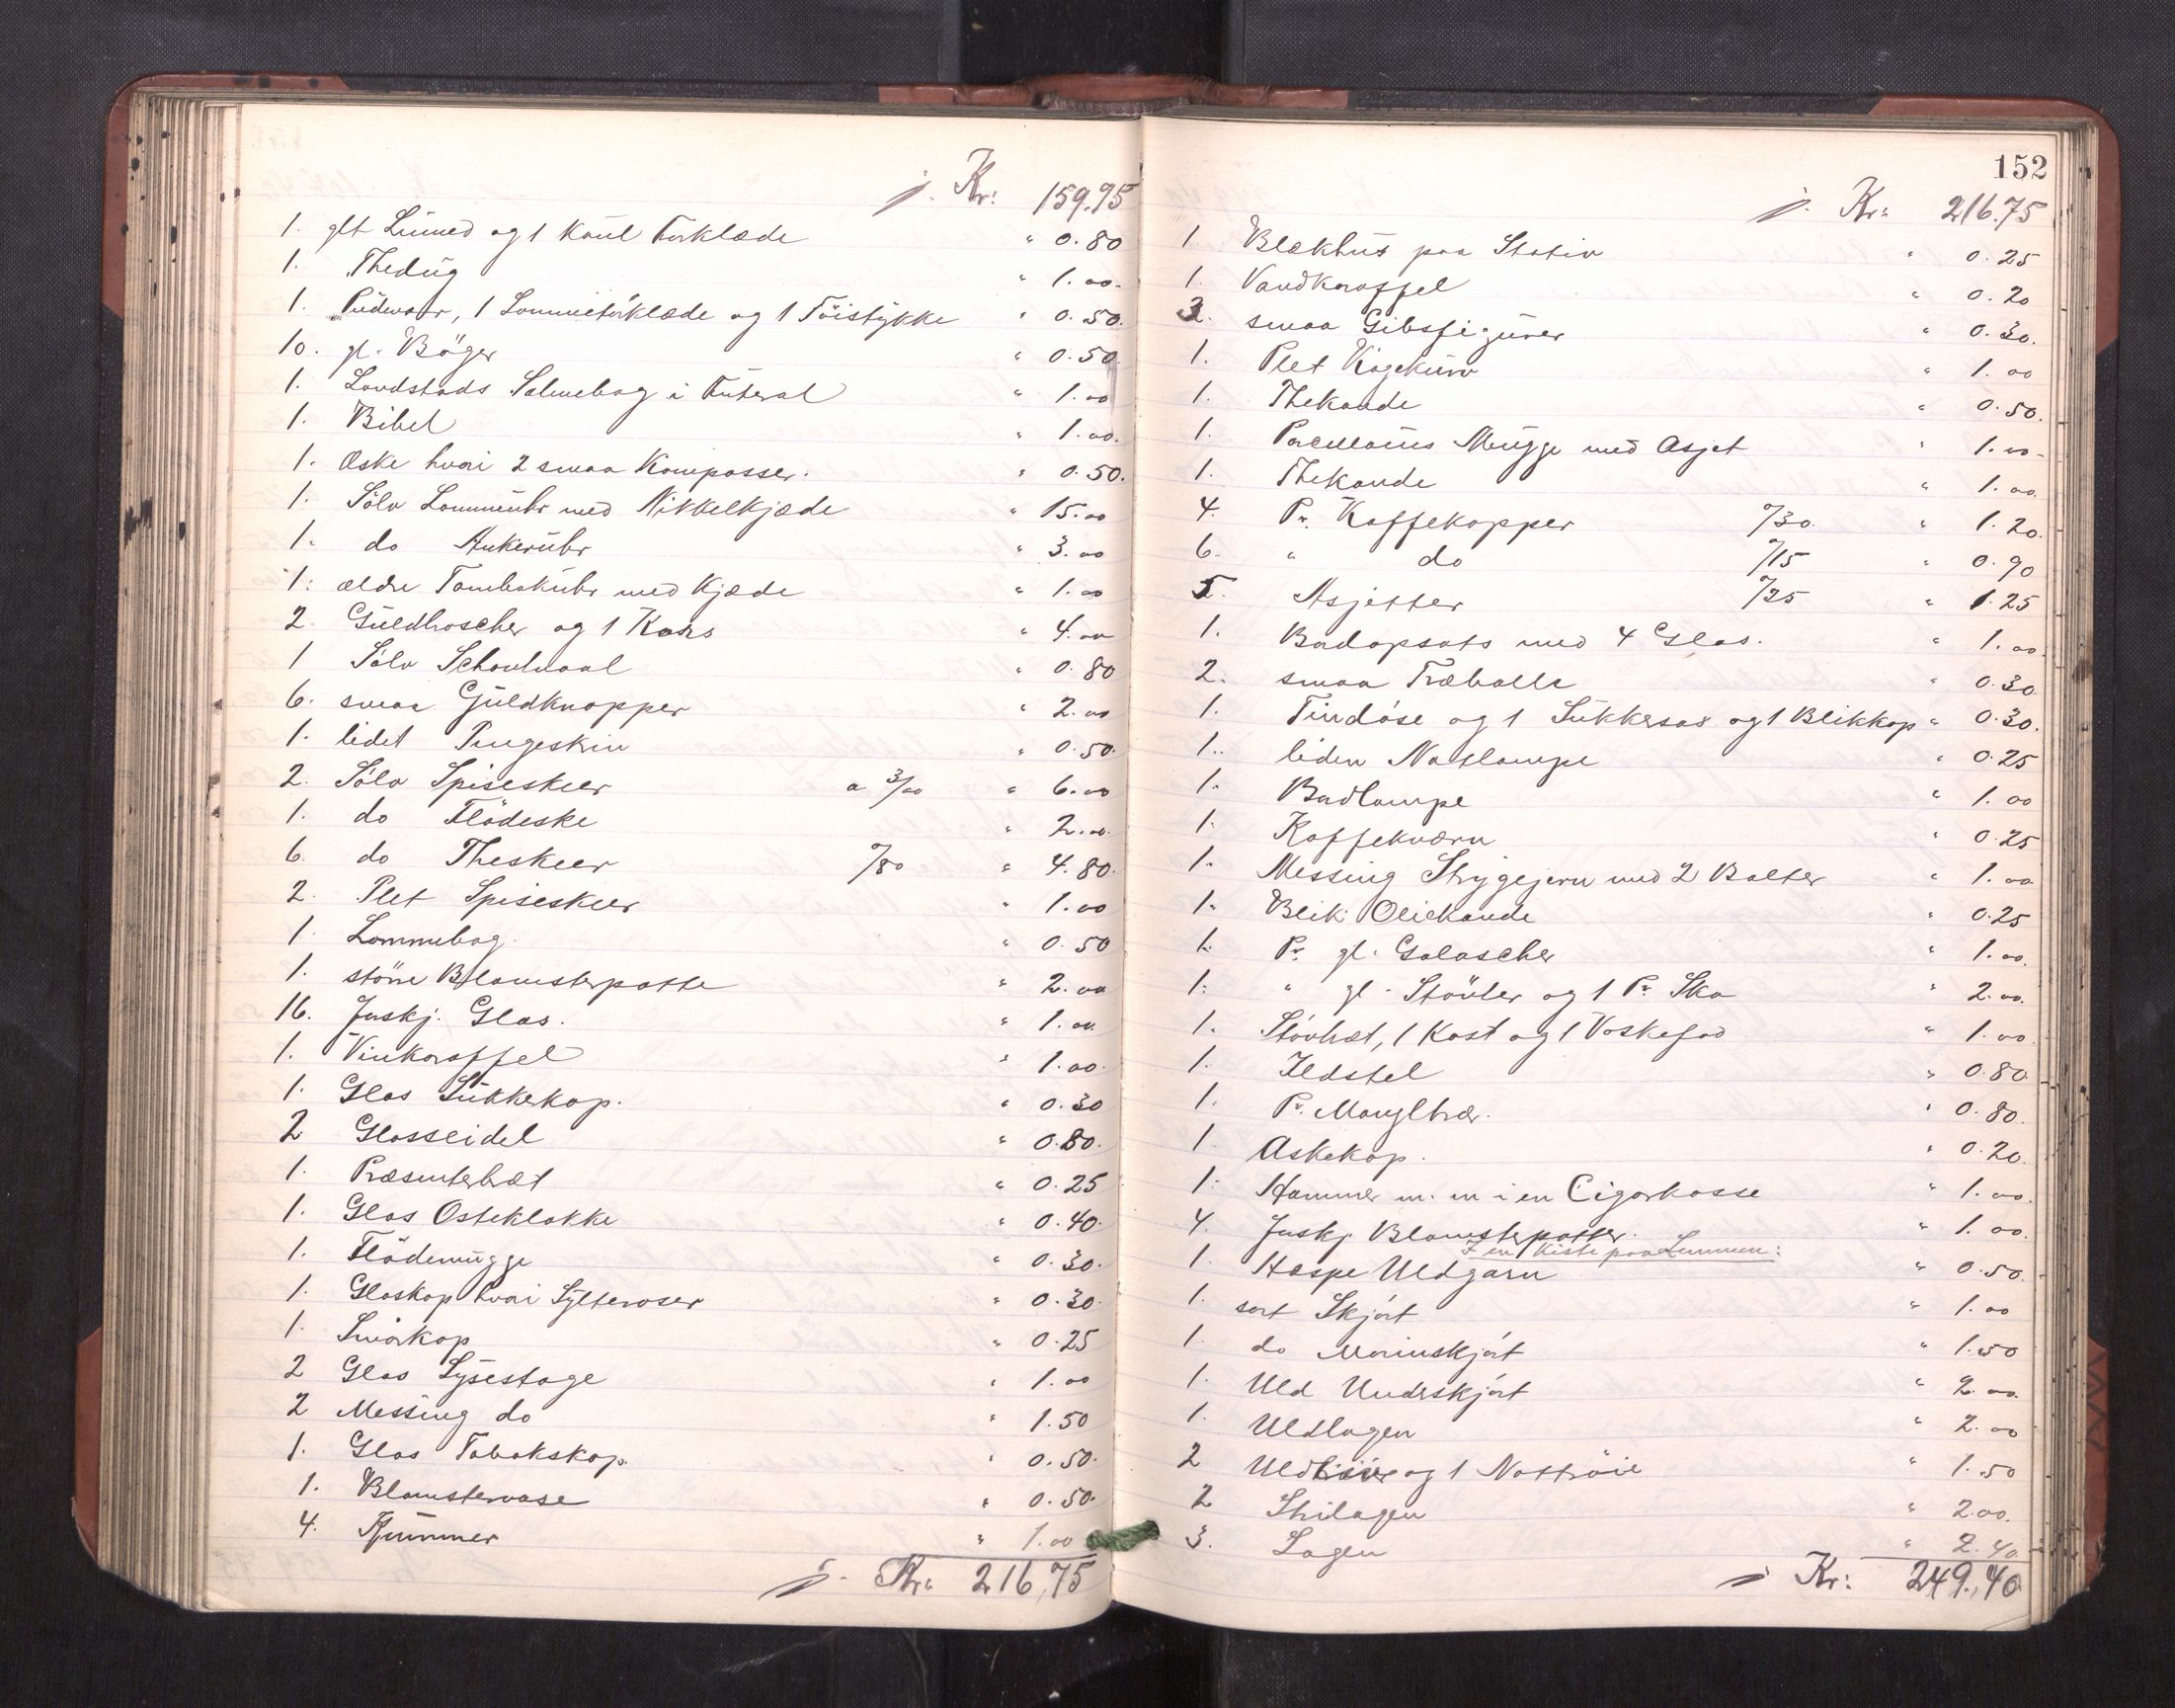 j. Kr: 159.95
1. glt Linned og 1 Kaul Forklæde " 0.80
1. Thedug " 1.00.
1. Pudevaar, 1 Lommetörklæde og 1 Töistykke " 0.50.
10. gl. Böger " 0.50
1. Landstads Salmebog i Futeral " 1.00
1. Bibel " 1.00.
1. Æske hvori 2 smaa Kompasser. " 0.50.
1. Sölv Lommeuhr med Nikkelkjæde " 15.00
1. do Ankeruhr " 3.00
1. ældre Tambakuhr med Kjæde " 1.00
2. Guldbroscher og 1 Kors " 4.00
1 Sölv Schavlnaal " 0.80
6. smaa Guldknapper " 2.00
1. lidet Pengeskrin " 0.50.
2. Sölv Spiseskeer a 3/00 " 6.00
1. do Flödeske " 2.00.
6. do Theskeer "/80 " 4.80.
2. Plet Spiseskeer " 1.00
1. Lommebog " 0.50
1. större Blomsterpotte " 2.00
16. Forskj. Glas. " 1.00.
1. Vinkaraffel " 1.00.
1. Glas Sukkerkop. " 0.30
2 Glasseidel " 0.80.
1. Præsenterbræt " 0.25
1. Glas Osteklokke " 0.40.
1. Flödemugge " 0.30.
1. Glaskop hvori Sylteroser " 0.30.
1. Smörkop " 0.25
2 Glas Lysestage " 1.00
2 Messing do " 1.50
1. Glas Tobakskop. " 0.50.
1. Blomstervase " 0.50.
4. Krummer " 1.00
j. Kr. 216,75
152
j. Kr: 216.75
1. Blækhus paa Stativ " 0.25
1. Vandkaraffel " 0.20
3. smaa Gibsfigurer " 0.30.
1. Plet Kagekurv " 1.00
1. Thekande " 0.50.
1. Porcellains Mugge med Asjet " 1.00-
1. Thekande " 1.00.
4. Pr. Kaffekopper "/30. " 1.20.
6. " do "/15 " 0.90
5. Asjetter "/25 " 1.25
1. Bordopsats med 4 Glas. " 1.00.
2. smaa Træballe " 0.30.
1. Tindöse og 1 Sukkersax og 1 Blikkop " 0.30.
1.. liden Natlampe " 0.25
1. Bordlampe " 1.00
1. Kaffekværn " 0.25
1. Messing Strygejern med 2 Bolter " 1.00
1. Blik Oliekande " 0.25
1. Pr. gl. Galoscher " 1.00.
1. " gl. Stövler og 1 Pr. Sko " 2.00.
1. Störbræt, 1 Kost og 1 Vaskefad " 1.00.
1. Ildstel " 0.80.
1. Pr. Mangltræ. " 0.80.
1. Askekop. " 0.20.
1. Hammer m. m i en Cigarkasse " 1.00.
4. Forskj Blomsterpotter. " 1.00.
I en Kiste paa Lemmen:
1. Haspe Uldgarn " 0.50.
1. sort Skjört " 1.00
1. do Morinskjört " 1.50
1. Uld Underskjört " 2.00.
1. Uldlagen " 2.00
2 og 1 Nattröie " 1.50
2 Strilagen " 2.00.
3. Lagen " 2.40
j Kr: 249.,40